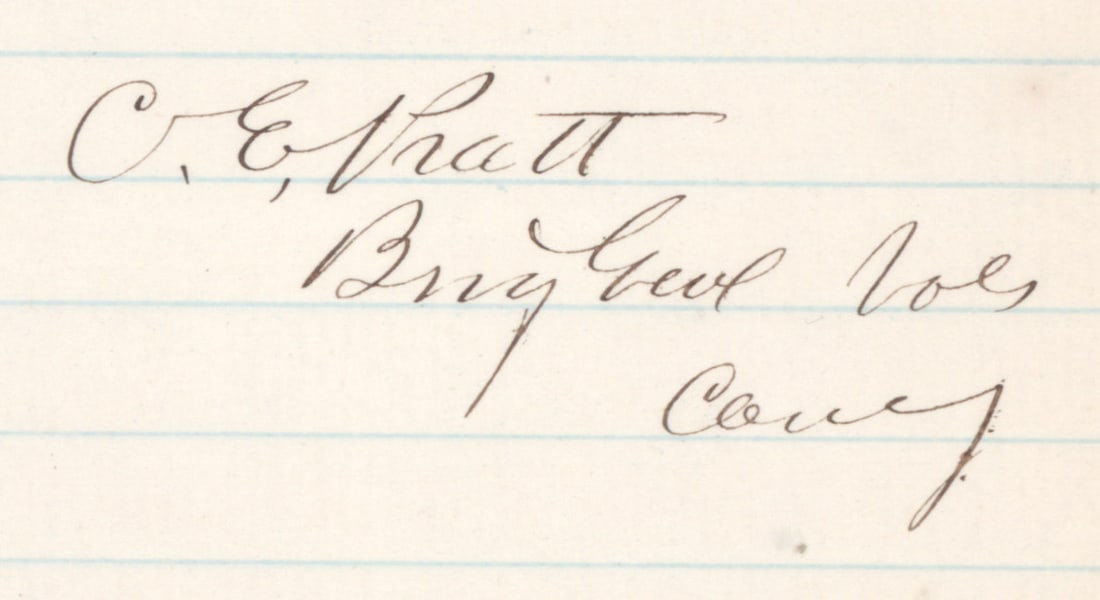 C. E, Pratt
Brig Genl Vols
Comg